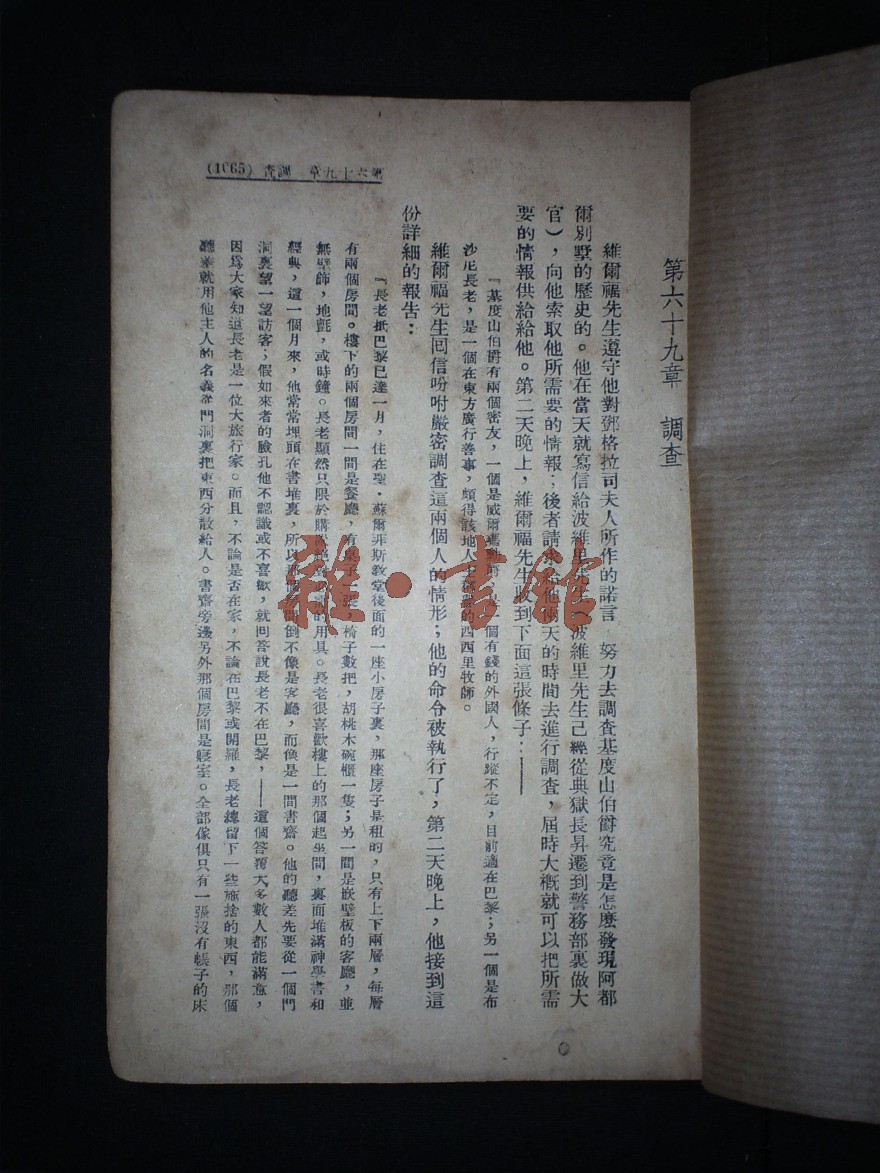 第六十九章　調查
維爾福先生遵守他對鄧格拉司夫人所作的諾言　努力去調查基度山伯爵究竟是怎麼發現阿都
爾別墅的歷史的。他在當天就寫信給波維里先生（波維里先生已經從典獄長昇遷到警務部裏做大
官），向他索取他所需要的情報；後者請求給他兩天的時間去進行調查，屆時大概就可以把所需
要的情報供給給他。第二天晚上，維爾福先生收到下面這張條子：——
『基度山伯爵有兩個密友，一個是威爾
一個有錢的外國人，行蹤不定，目前適在巴黎；另一個是布
沙尼長老，是一個在東方廣行善事，頗得該地人士
的西西里牧師。
維爾福先生回信吩咐嚴密調查這兩個人的情形；他的命令被執行了，第二天晚上，他接到這
份詳細的報告：
『長老抵巴黎已達一月，住在聖・蘇爾菲斯教堂後面的一座小房子裏，那座房子是租的，只有上下兩層，每層
有兩個房間。樓下的兩個房間一間是餐廳，有桌子一張，椅子數把，胡桃木碗櫃一隻；另一間是嵌壁板的客廳，並
無壁飾，地氈，或時鐘。長老顯然只限於購
的用具。長老很喜歡樓上的那個起坐間，裏面堆滿神學書和
經典，這一個月來，他常常埋頭在書堆裏，所以那個房間倒不像是客廳，而像是一間書齋。他的聽差先要從一個門
洞裏望一望訪客；假如來者的臉孔他不認識或不喜歡，就回答說長老不在巴黎，——這個答覆大多數人都能滿意，
因爲大家知道長老是一位大旅行家。而且，不論是否在家，不論在巴黎或開羅，長老總留下一些施捨的東西，那個
聽差就用他主人的名義從門洞裏把東西分散給人。書齋旁邊另外那個房間是寢室。全部傢俱只有一張沒有帳子的床
第六十九章　調查　(1065)
雜・書館